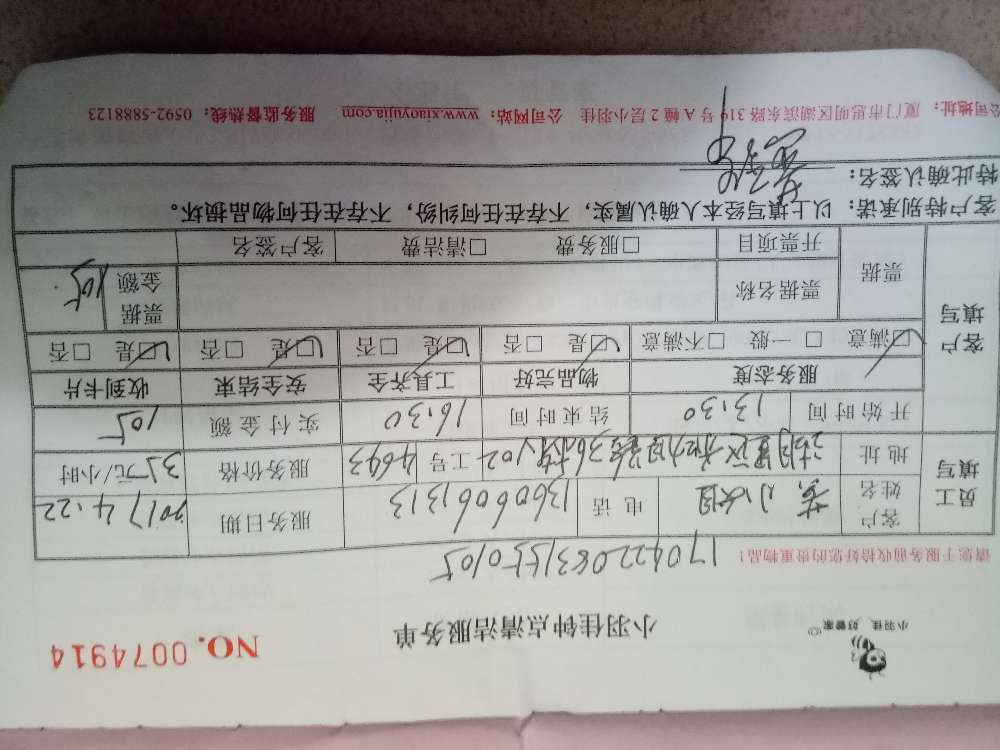 小羽佳,好管家
小羽佳钟点清洁服务单
NO.0074914
请您于服务前收拾好您的贵重物品!
1704220831550105
员工填写
客户姓名 黄小姐 电话 13606061313 服务日期 2017 4.22
地址 36 102 工号 4693 服务价格 35元/小时
开始时间 13:30 结束时间 16:30 实付金额 105
客户填写
服务态度 物品完好 工具齐全 安全结束 收到卡片
☑满意 □一般 □不满意 ☑是 □否 ☑是 □否 ☑是 □否 ☑是 □否
票据 票据名称 票据金额 105
开票项目 □服务费 □清洁费 客户签名
客户特别承诺:以上填写经本人确认属实,不存在任何纠纷,不存在任何物品损坏。
特此确认签名:
公司地址:厦门市思明区湖滨东路319号A幢2层小羽佳 公司网站:www.xiaoyujia.com 服务监督热线:0592-5888123